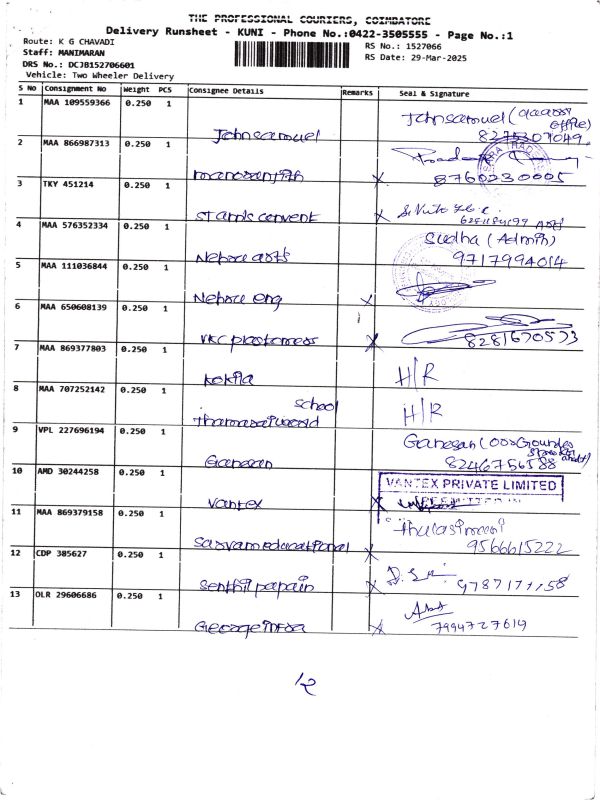 THE PROFESSIONAL COURIERS, COIMBATORE
Delivery Runsheet - KUNI - Phone No.:0422-3505555 - Page No.:1
Route: K G CHAVADI
RS No.: 1527066
Staff: MANIMARAN
RS Date: 29-Mar-2025
DRS No.: DCJB152706601
Vehicle: Two Wheeler Delivery
S No Consignment No Weight PCS Consignee Details Remarks Seal & Signature
1 MAA 109559366 0.250 1 Johnsamuel Johnsamuel (
office)
2 MAA 866987313 0.250 1 manoranjith 8760230005
3 TKY 451214 0.250 1 St annls convent
4 MAA 576352334 0.250 1 Nehru arts Sudha (Admin)
9717994014
5 MAA 111036844 0.250 1 Nehru eng
6 MAA 650608139 0.250 1 VKC plastomers 8281670573
7 MAA 869377803 0.250 1 Kokila H/R
8 MAA 707252142 0.250 1 school H/R
9 VPL 227696194 0.250 1 Ganesan Ganesan (
8246756588
10 AMD 30244258 0.250 1 Vantex VANTEX PRIVATE LIMITED
11 MAA 869379158 0.250 1 Sarvam educational Thulasimani
9566615222
12 CDP 385627 0.250 1 Senthil papain
13 OLR 29606686 0.250 1 George infra
7994727619
12